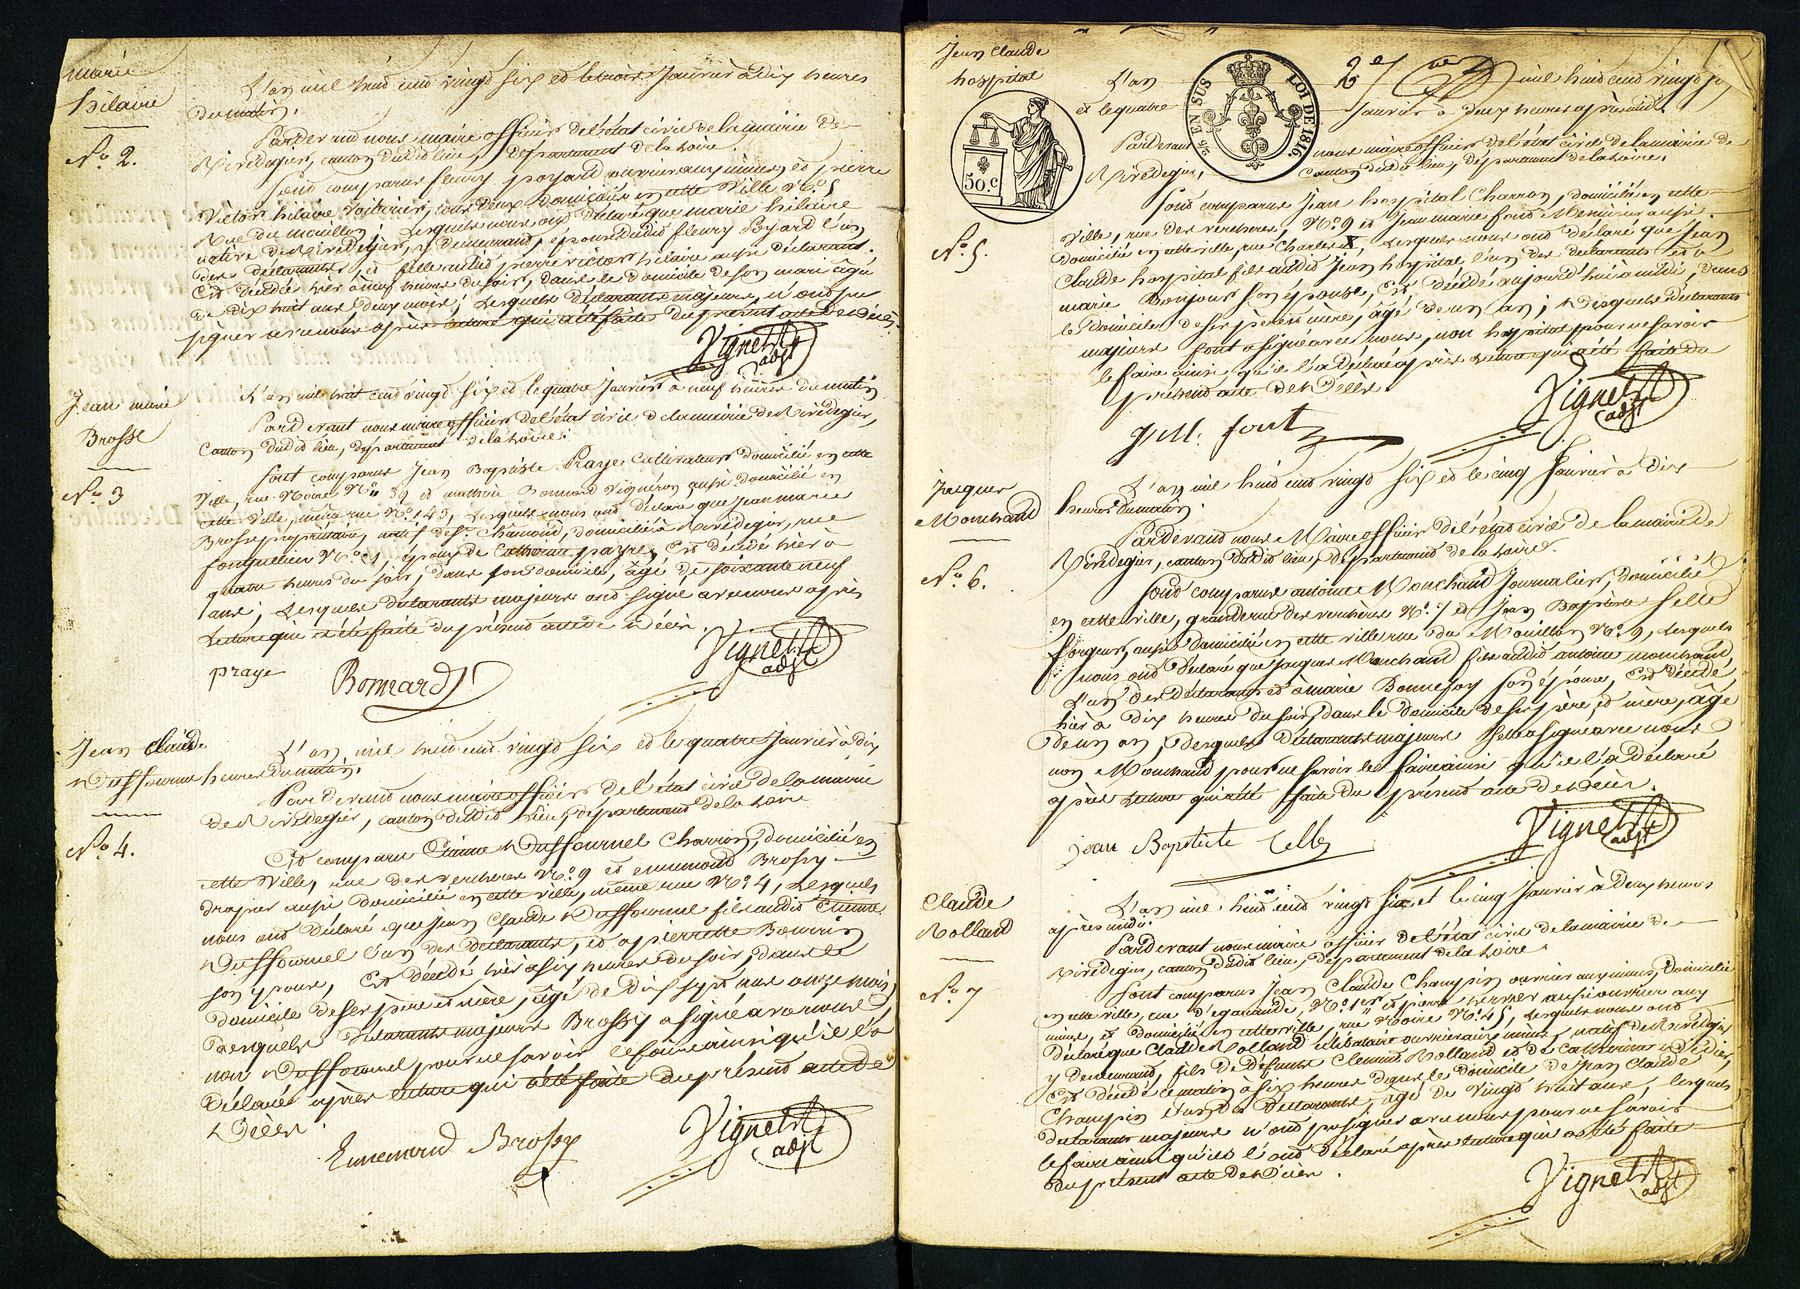 marie
hilaire
No. 2.
L'an mil huit cent vingt six et le trois Janvier à dix heures
du matin.
Pardevant nous maire officier de l'état civil de la mairie de
Rivedegier, canton dudit lieu, département de la Loire.
Sont comparus fleury poyard ouvrier aux mines, et pierre
Victor hilaire Voiturier, tous deux domiciliés en cette Ville No. 5
Rue du mouillon; Lesquels nous ont déclaré que marie hilaire
native de Rivedegier, y demeurant, épouse dudit fleury Poyard l'un
des déclarants, et fille audit pierre victor hilaire aussi déclarant.
Est décédée hier à neuf heures du soir, dans le domicile de son mari âgée
de dix huit ans deux mois; Lesquels déclarants majeurs, n'ont pu
signer avec nous après lecture qui a été faite du présent acte de décès.
Vignet
adjt
Jean marie
Brosse
No. 3
L'an mil huit cent vingt six et le quatre Janvier à neuf heures du matin
Pardevant nous maire officier de l'état civil de la mairie de Rivedegier,
canton dudit lieu, département de la Loire.
Sont comparus Jean Baptiste Praye Cultivateur domicilié en cette
Ville, rue Noire No. 39 et mathieu Bonnard Vigneron aussi domicilié en
cette Ville, même rue No. 43, Lesquels nous ont déclaré que Jean marie
Brosse propriétaire, natif de St. Chamond, domicilié à Rivedegier, rue
époux de Catherine payre, Est décédé hier à
quatre heures du soir, dans son domicile, âgé de soixante neuf
ans; Lesquels déclarants majeurs ont signé avec nous après
Lecture qui a été faite du présent acte de décès.
praye Bonnard
Vignet
adjt
Jean Claude
Duffournel
No. 4.
L'an mil huit cent vingt six et le quatre Janvier à dix
heures du matin.
Pardevant nous maire officier de l'état civil de la mairie
de Rivedegier, canton dudit lieu, département de la Loire
Est comparu Etienne Duffournel Charron, domicilié en
cette Ville, rue des Verchères No. 9 et ennemond Brossy
drapier aussi domicilié en cette ville, même rue No. 4, Lesquels
nous ont déclaré que Jean Claude Duffournel fils audit Etienne
Duffournel l'un des déclarants, et à pierrette Bouvin
son épouse, Est décédé hier à six heures du soir, dans le
domicile de ses père et mère, âgé de dix sept ans onze mois,
Desquels déclarants majeurs Brossy a signé avec nous
non Duffournel pour ne savoir le faire ainsi qu'il l'a
déclaré après lecture qui a été faite du présent acte de
Décès.
Ennemond Brossy
Vignet
adjt
Jean Claude
hospital
No. 5.
50. C
25 EN SUS LOI DE 1816.
2e
L'an mil huit cent vingt six
et le quatre Janvier à deux heures après midi.
Pardevant nous maire officier de l'état civil de la mairie de
Rivedegier, canton dudit lieu, département de la Loire.
Sont comparus Jean hospital Charron, domicilié en cette
Ville, rue des verchères, No. 9 et Jean marie font Menuisier aussi
domicilié en cette ville rue Charles X, Lesquels nous ont déclaré que Jean
Claude hospital fils audit Jean hospital l'un des déclarants et à
marie Bonjour son épouse, Est décédé aujourd'hui à midi, dans
le domicile de ses père et mère, âgé de un an; Desquels déclarants
majeurs font a signé avec nous, non hospital pour ne savoir
le faire ainsi qu'il l'a déclaré après lecture qui a été faite du
présent acte de Décès.
J M. font
Vignet
adjt
Jacques
Mouchand
No. 6.
L'an mil huit cent vingt six et le cinq Janvier à dix
heures du matin.
Pardevant nous Maire officier de l'état civil de la mairie de
Rivedegier, canton dudit lieu, département de la Loire.
Sont comparus antoine Mouchand Journalier, domicilié
en cette ville, grande rue des verchères No. 7 et Jean Baptiste Selle
forgeur, aussi domicilié en cette ville rue du Mouillon No. 9, Lesquels
nous ont déclaré que Jacques Mouchand fils audit antoine mouchand
l'un des déclarants et à marie Bonnefoy son épouse, Est décédé
hier à dix heures du soir, dans le domicile de ses père et mère, âgé
de un an; Desquels déclarants majeurs Selle a signé avec nous
non Mouchand pour ne savoir le faire ainsi qu'il l'a déclaré
après Lecture qui a été faite du présent acte de décès.
jean Baptiste Celle
Vignet
adjt
Claude
Rolland
No. 7
L'an mil huit cent vingt six et le cinq Janvier à deux heures
après midi.
Pardevant nous maire officier de l'état civil de la mairie de
Rivedegier, canton dudit lieu, département de la Loire.
Sont comparus Jean Claude Champin ouvrier aux mines, Domicilié
en cette ville, rue d'egarande, No. 1er et pierre aussi ouvrier aux
mines, et domicilié en cette ville, rue Noire No. 45, Lesquels nous ont
déclaré que Claude Rolland célibataire ouvrier aux mines, natif de Rivedegier
y demeurant, fils de défunts Clément Rolland et de Catherine
Est décédé ce matin à six heures dans le domicile de Jean Claude
Champin l'un des déclarants, âgé de Vingt huit ans, lesquels
déclarants majeurs n'ont pu signer avec nous pour ne savoir
le faire ainsi qu'ils l'ont déclaré après lecture qui a été faite
du présent acte de Décès.
Vignet
adjt